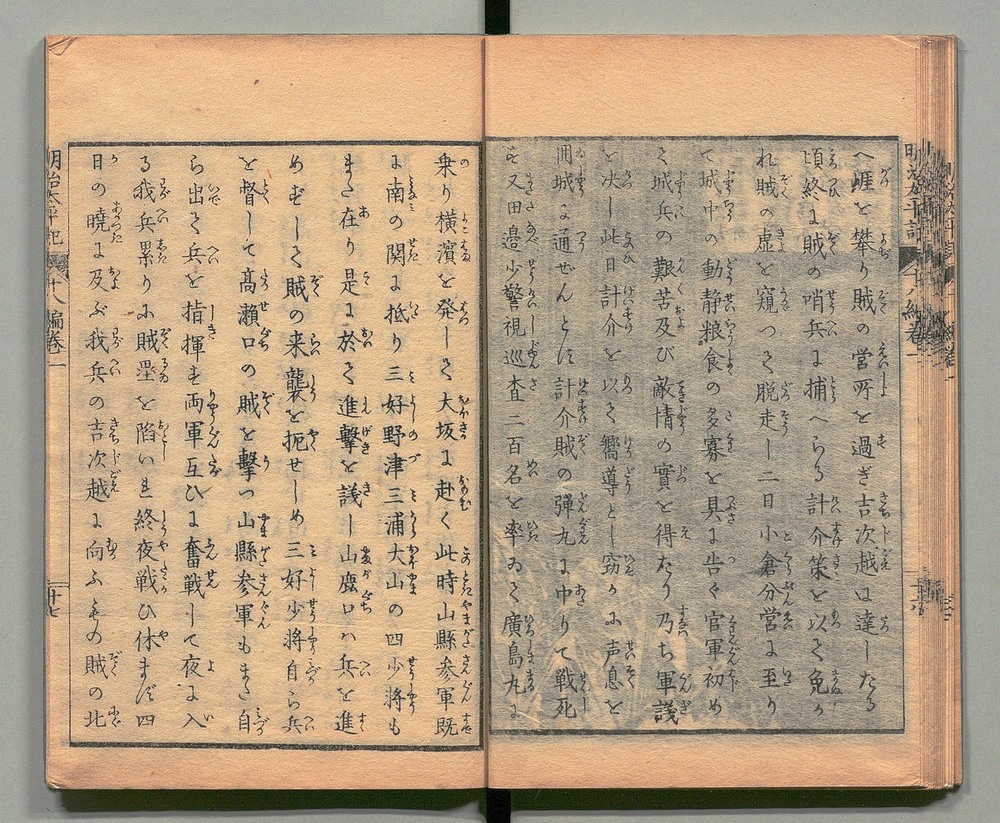 へ崕を攀り賊の営所を過ぎ吉次越に達したる
頃終に賊の哨兵に捕へらる計介策を以て免か
れ賊の虚を窺つて脱走し二日小倉分営に至り
て城中の動静粮食の多寡を具に告ぐ官軍初め
て城兵の艱苦及び敵情の實を得たり乃ち軍議
を决し此日計介を以て嚮導とし窃かに声息を
冊城に通ぜんとに計介賊の弾丸に中りて戦死
す又田邉少警視巡査二百名を率ゐて廣島丸に
乗り横濵を発して大坂に赴く此時山縣参軍既
に南の関に抵り三好野津三浦大山の四少将も
また在り是に於て進撃を議し山鹿口ハ兵を進
めずして賊の来襲を扼せしめ三好少将自ら兵
を督して髙瀬口の賊を撃つ山縣参軍もまた自
ら出て兵を指揮す両軍互ひに奮戦して夜に入
る我兵累りに賊塁を陥いれ終夜戦ひ休まず四
日の曉に及ぶ我兵の吉次越に向ふもの賊の北
明治太平記
十八編巻一
二十七